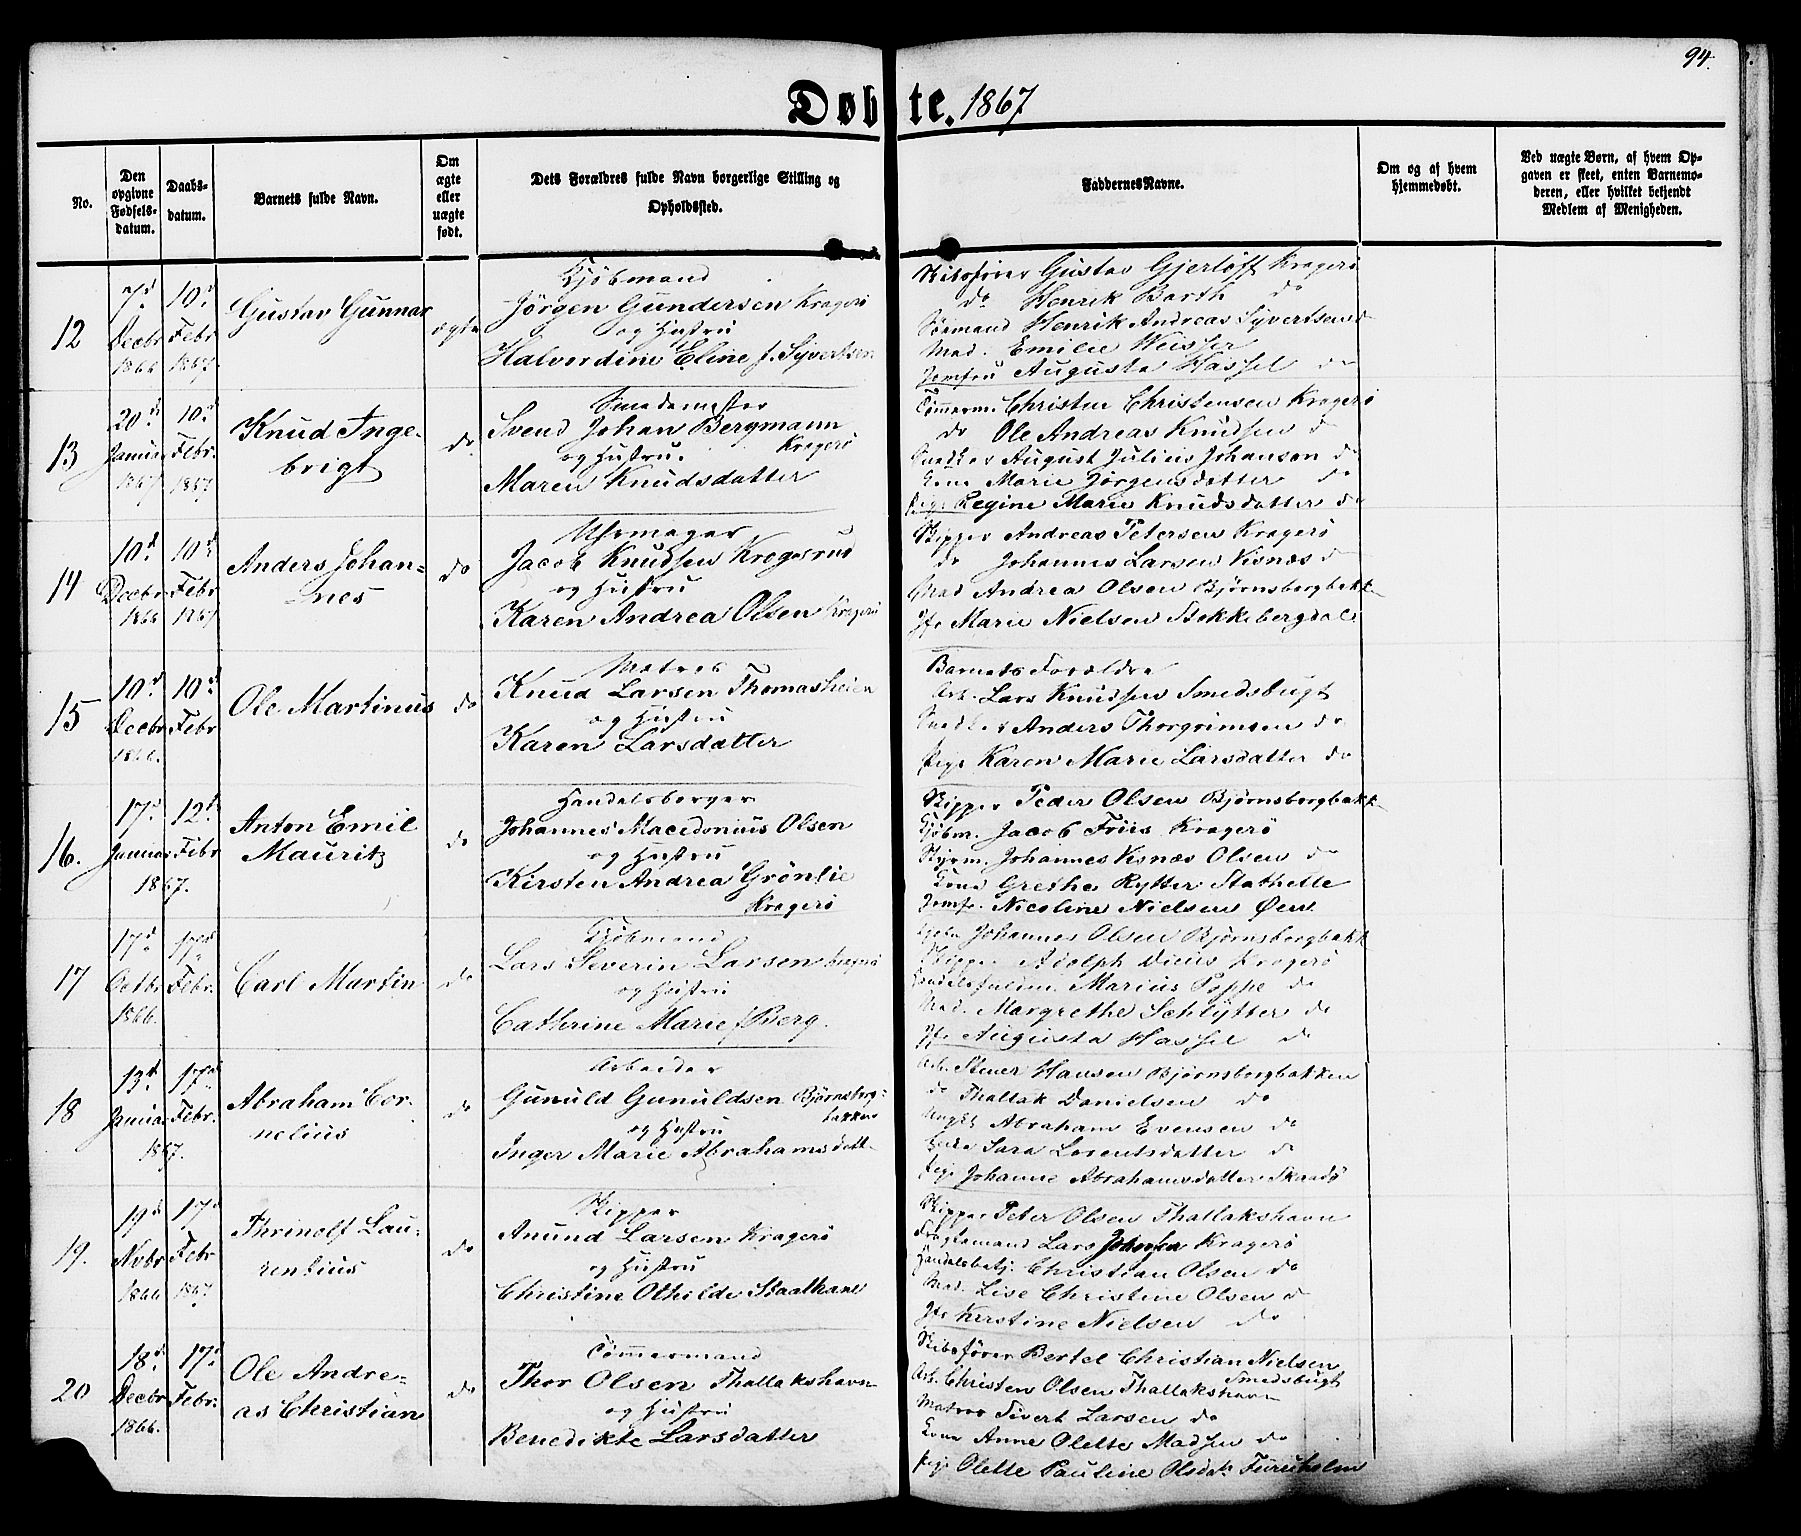 94.
Døbte. 1867
No.
Den opgivne Fødsels-datum.
Daabs-datum.
Barnets fulde Navn.
Om ægte eller uægte født.
Dets Forældres fulde Navn borgerlige Stilling og Opholdssted.
FaddernesNavne.
Om og af hvem hjemmedøbt.
Ved uægte Børn, af hvem Opgaven er skeet, enten Barnemoderen, eller hvilket bekjendt Medlem af Menigheden.
12
7d Decbr 1866
10d Febr 1867
Gustav Gunnar
ægte
Kjøbmand
Jörgen Gundersen Kragerö
og Hustru
Halvordine Eline f. Syvertsen
Skibsfører Gustav Gjerløff Kragerö
do Henrik Barth do
Sømand Henrik Andreas Syvertsen do
Mad. Emilie Weisser
Jomfru Augusta Hassel do
13
20d Januar 1867
10d Febr. 1867
Knud Inge-
brigt
do
Smedemester
Svend Johan Bergmann
og Hustru. Kragerö
Maren Knudsdatter
Tømmerm. Christen Christensen Kragerö
do Ole Andreas Knudsen d
Snedker August Julius Johansen do
Kone Marie Jørgensdatter do
Pige Regine Marie Knudsdatter do
14
10d Decbr 1866
10d Febr 1867
Anders Johan-
nes
do
Uhrmager
Jacob Knudsen Kragerö
og Hustru
Karen Andrea Olsen Kragerö
Skipper Andreas Petersen Kragerö
do Johannes Larsen Visnæs do
Mad Andrea Olsen Björnsbergbakk
Jfr Marie Nielsen Stekkebergdal
15
10d Decbr 1866.
10d Febr
Ole Martinus
do
Matros
Knud Larsen Thomasheien
og Hustru
Karen Larsdatter
Barnets Forældre
Arb. Lars Knudsen Smedsbugt
Snedker Anders Thorgrimsen do
Pige Karen Marie Larsdatter do
16.
17d Januar
12d Febr
1867.
Anton Emil
Mauritz
do
Handelsborger
Johannes Macedonius Olsen
og Hustru
Kirsten Andrea Grönlie
Kragerö
Skipper Peder Olsen Björnsbergbakk
Kjøbm. Jacob Friis Kragerö
Styrm. Johannes Visnæs Olsen do
Kone Grethe Rytter Stathelle
Jomfr. Nicoline Nielsen Øen
17
17d Octbr 1866.
17d Febr.
Carl Martin
do
Kjøbmand
Lars Severin Larsen Kragerö
og Hustru
Cathrine Marie f Berg.
Johannes Olsen Björnsbergbakk
Skipper Adolph Dicus Kragerö
Marius Poppe do
Mad. Margrethe Schlytter do
Jfr Augusta Hassel do
18
13d Januar
17d Febr.
1867.
Abraham Cor-
nelius
do
Arbeider
Gunuld Gunuldsen Björnsberg-
bakken
og Hustru
Inger Marie Abrahamsdatt.
Arb. Stener Hansen Björnsbergbakken
do Thallak Danielsen do
Ungk. Abraham Evensen do
Enke Sara Lorentsdatter do
Pige Johanne Abrahamsdatter Skaadö
19.
19d Novbr 1866
17d Febr 1867
Thrinolf Lau-
rentius
do
Skipper
Anund Larsen Kragerö
og Hustru
Christine Othilde Staalhane
Skipper Peter Olsen Thallakshavn
Fragtemand Lars Johnsen Kragerö
Handelsbetj. Christian Olsen do
Mad. Lise Christine Olsen d
Jfr Kerstine Nielsen do
20
18d Decbr 1866.
17d Febr.
Ole Andre-
as Christian
do
Tömmermand
Thor Olsen Thallakshavn
og Hustru
Benedikte Larsdatter
Skibsfører Bertel Christian Nielsen
Smedsbugt
Arb. Christen Olsen Thallakshavn
Matros Sivert Larsen do
Kone Anne Olette Madsen do
Pige Olette Pauline Olsdatr Furuholm